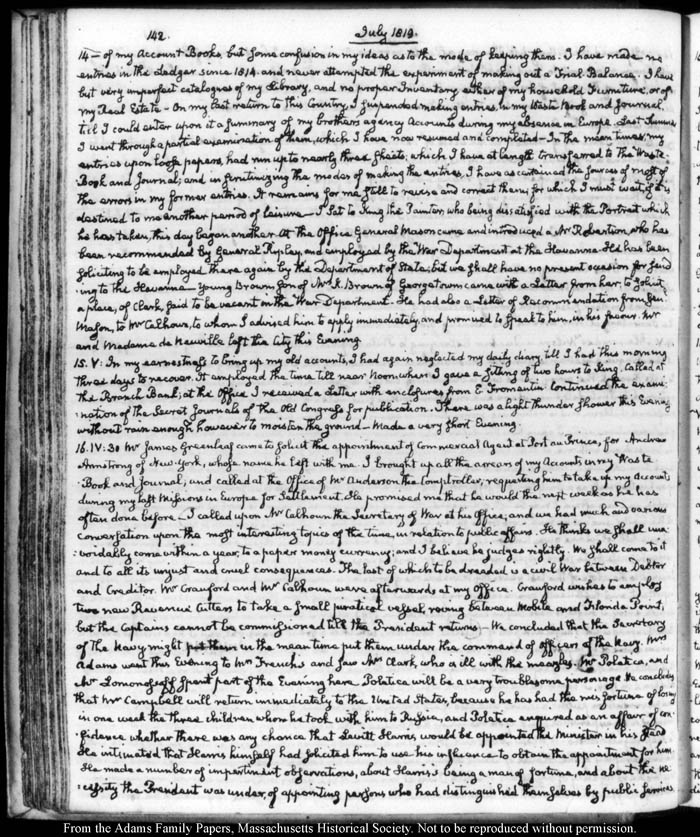 142.
July 1819.
14— of my Account Books, but some confusion in my ideas as to the mode of keeping them. I have made no
entries in the Ledger since 1814. and never attempted the experiment of making out a Trial Balance. I have
but very imperfect catalogues of my Library, and no proper Inventory either of my household Furniture, or of
my Real Estate— On my last return to this Country, I suspended making entries, in my Waste Book and Journal,
till I could enter upon it a summary of my brother's agency Accounts during my absence in Europe. Last Summer
I went through a partial examination of them, which I have now resumed and completed— In the mean time, my
entries upon loose papers, had run up to nearly three sheets; which I have at length transferred to the Waste-
Book and Journal; and in scrutinizing the modes of making the entries, I have ascertained the sources of most of
the errors in my former entries. It remains for me still to revise and correct them; for which I must wait, if I am
destined to me another period of leisure— I sat to King the Painter, who being dissatisfied with the Portrait which
he has taken, this day began another. At the Office General Mason came and introduced a Mr Robertson, who has
been recommended by General Ripley, and employed by the War Department at the Havanna. He has been
soliciting to be employed there again by the Department of State; but we shall have no present occasion for send
:ing to the Havanna— Young Brown, son of Mrs. Brown of Georgetown came with a Letter from her; to solicit
a place, of Clerk, said to be vacant in the War Department. He had also a Letter of Recommendation from Genl.
Mason, to Mr Calhoun, to whom I advised him to apply immediately, and promised to speak to him, in his favour. Mr
and Madame de Neuville left the City this Evening.
15. V: In my earnestness to bring up my old accounts, I had again neglected my daily diary, till I had this morning
three days to recover. It employed the time till near Noon, when I gave a sitting of two hours to King. Called at
the Branch Bank; at the Office I received a Letter with enclosures from E. Fromentin. Continued the exami
:nation of the Secret Journals of the Old Congress for publication. There was a light thunder shower this Evening
without rain enough however to moisten the ground— Made a very short Evening.
16. IV:30 Mr James Greenleaf came to solicit the appointment of Commercial Agent at Port au Prince, for Andrew
Armstrong of New-York, whose name he left with me. I brought up all the arrears of my Accounts in my Waste
Book and Journal, and called at the Office of Mr Anderson the Comptroller, requesting him to take up my Accounts
during my last Missions in Europe for Settlement. He promised me that he would the next week as he has
often done before— I called upon Mr Calhoun the Secretary of War at his Office, and we had much and various
conversation upon the most interesting topics of the time, in relation to public affairs. He thinks we shall una
:voidably come within a year, to a paper money currency; and I believe he judges rightly. We shall come to it
and to all its unjust and cruel consequences. The last of which to be dreaded is a civil War between Debtor
and Creditor. Mr Crawford and Mr Calhoun were afterwards at my Office. Crawford wishes to employ
two new Revenue Cutters to take a small piratical vessel, roving between Mobile and Florida Point;
but the Captains cannot be commissioned till the President returns— We concluded that the Secretary
of the Navy might put them in the mean time put them under the command of Officers of the Navy. Mrs
Adams went this Evening to Mrs French's and saw Mrs Clark, who is ill with the measles. Mr Poletica, and
Mr Lomonosoff spent part of the Evening here. Poletica will be a very troublesome personage. He concludes
that Mr Campbell will return immediately to the United States, because he has had the misfortune of losing
in one week the three children whom he took with him to Russia, and Poletica enquired as an affair of con
:fidence whether there was any chance that Levitt Harris, would be appointed the Minister in his stead
He intimated that Harris himself had solicited him to use his influence to obtain the appointment for him.
He made a number of impertinent observations, about Harris's being a man of fortune, and about the ne
:cessity the President was under, of appointing persons who had distinguished themselves by public services
From the Adams Family Papers, Massachusetts Historical Society. Not to be reproduced without permission.